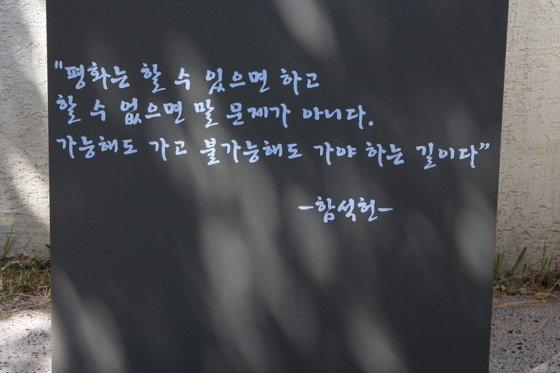 "평화는 할 수 있으면 하고
할 수 없으면 말 문제가 아니다.
가능해도 가고 불가능해도 가야 하는 길이다"
-함석헌-